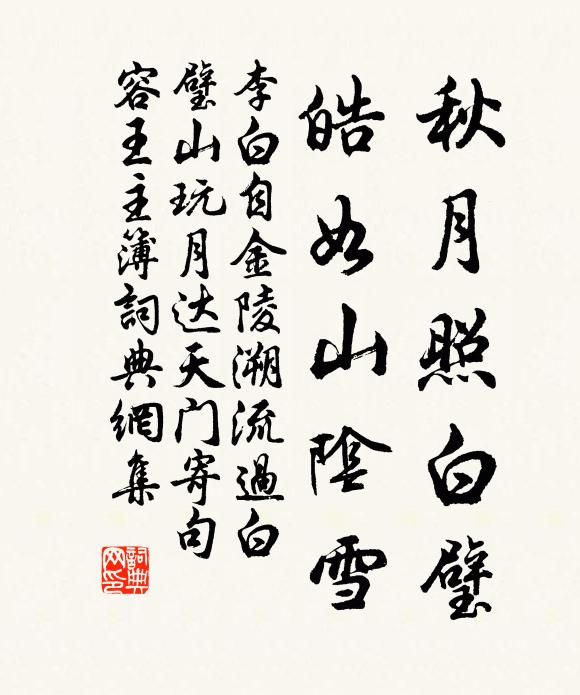 秋月照白璧
皓如山陰雪
李白自金陵溯流過白
璧山玩月达天门寄句
容王主簿詞典網集
詞典网印